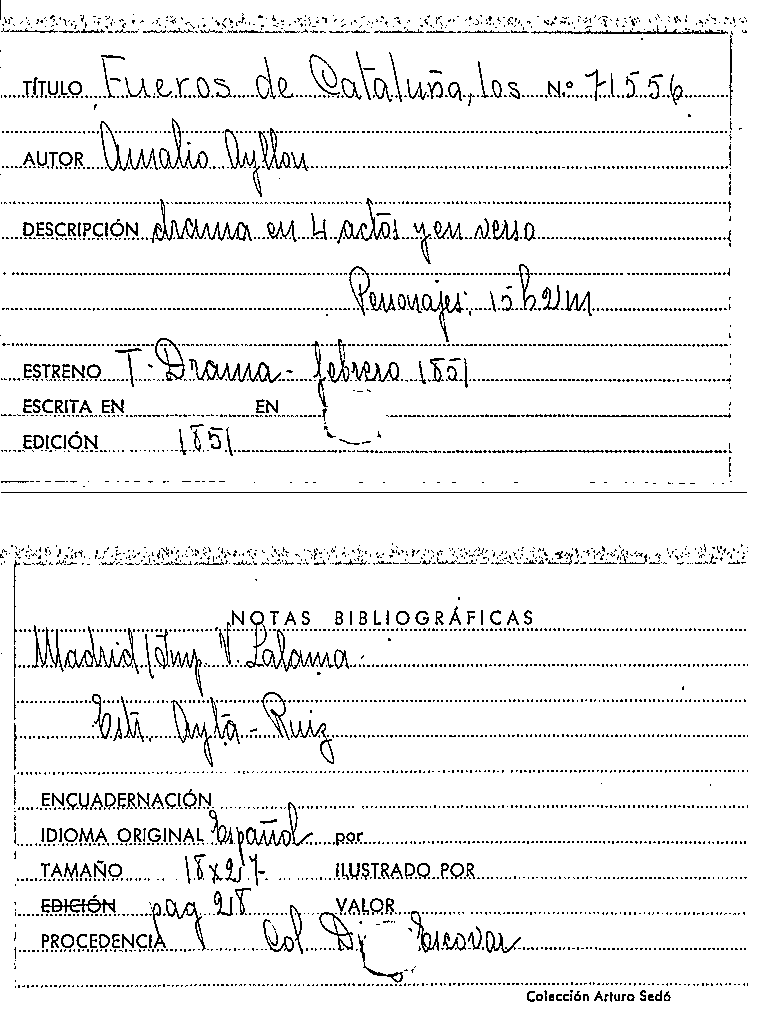 TÍTULO Fueros de Cataluña, los N.º 71556
AUTOR Amalio Ayllon
DESCRIPCIÓN drama en 4 actos y en verso
Personajes: 15h 2m
ESTRENO T. Drama - febrero 1851
ESCRITA EN EN
EDICIÓN 1851
NOTAS BIBLIOGRÁFICAS
Madrid / Imp. V. Lalama.
Estr. Ayta - Ruiz
ENCUADERNACIÓN
IDIOMA ORIGINAL Español por
TAMAÑO 18x27 ILUSTRADO POR
EDICIÓN pag 28 VALOR
PROCEDENCIA Col Escovar
Colección Arturo Sedó